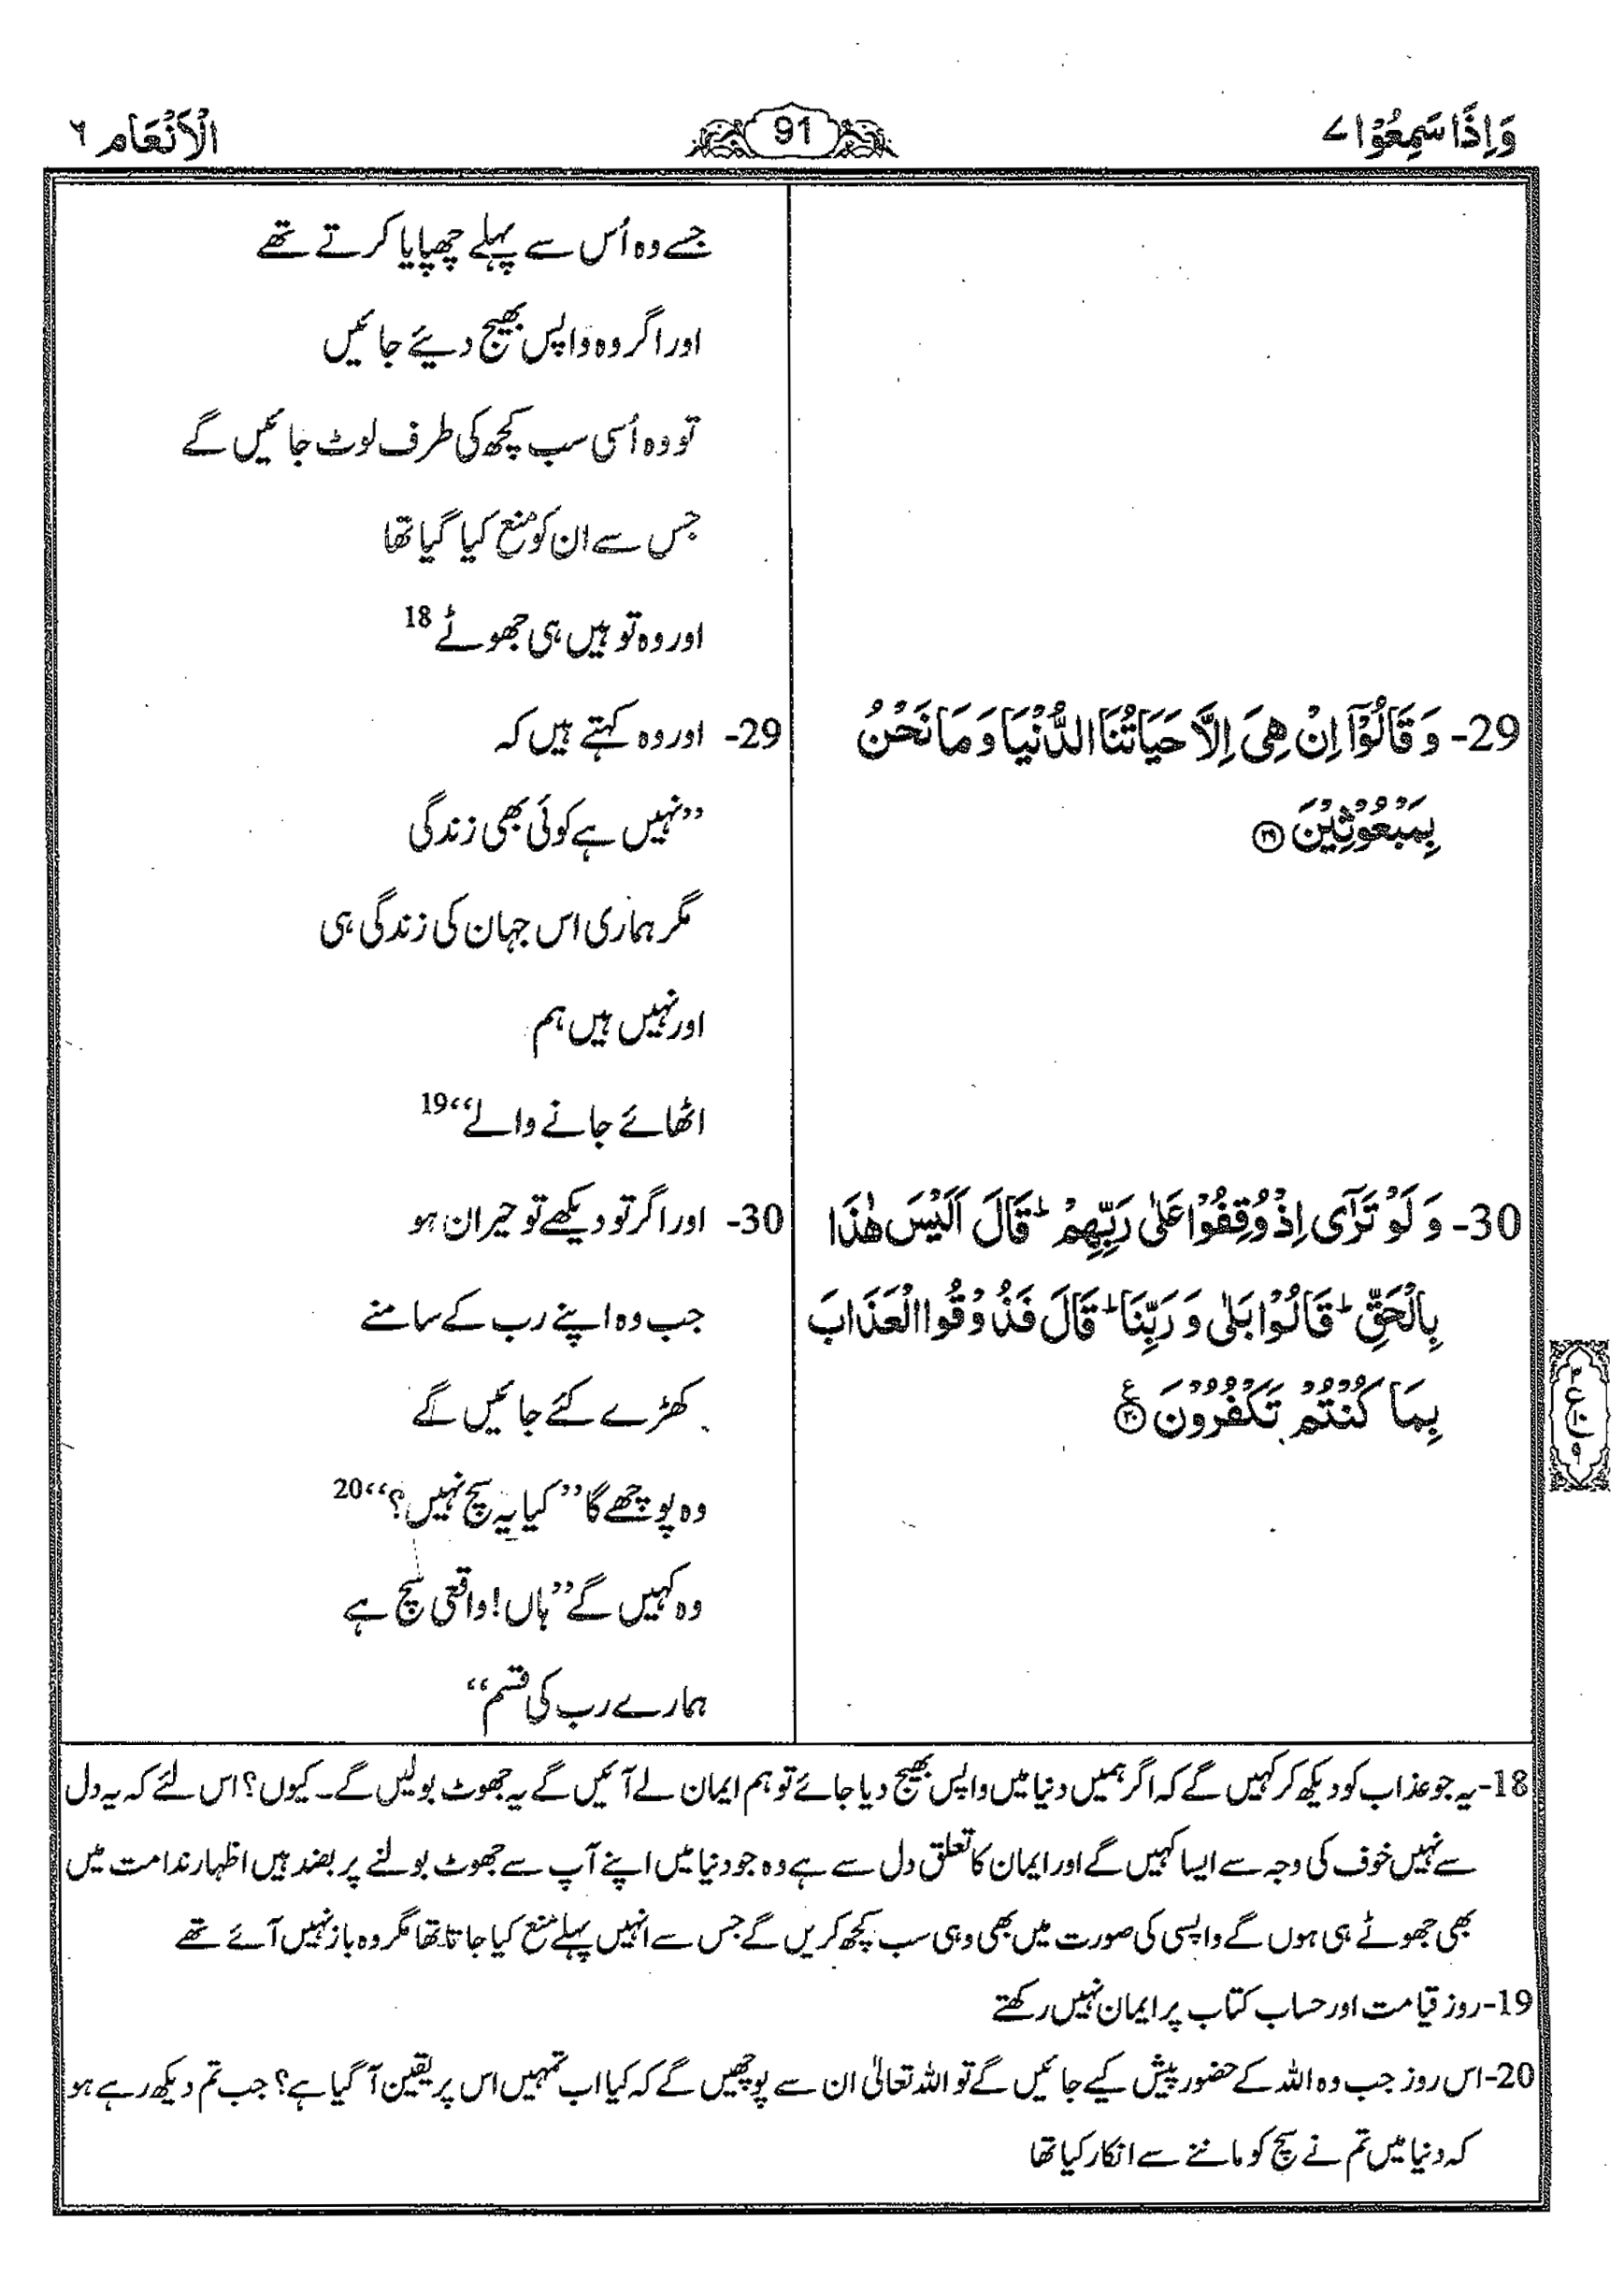 وَاِذَا سَمِعُوْا ۷
91
الْاَنْعَام ۶
29- وَ قَالُوْٓا اِنْ هِیَ اِلَّا حَیَاتُنَا الدُّنْیَا وَ مَا نَحْنُ
بِمَبْعُوْثِیْنَ ۝۲۹
30- وَ لَوْ تَرٰٓی اِذْ وُقِفُوْا عَلٰی رَبِّهِمْ ؕ قَالَ اَلَیْسَ هٰذَا
بِالْحَقِّ ؕ قَالُوْا بَلٰی وَ رَبِّنَا ؕ قَالَ فَذُوْقُوا الْعَذَابَ
بِمَا كُنْتُمْ تَكْفُرُوْنَ ۝۳۰ ع
۳
ع
۱۰
۹
جسے وہ اُس سے پہلے چھپایا کرتے تھے
اور اگر وہ واپس بھیج دیئے جائیں
تو وہ اُسی سب کچھ کی طرف لوٹ جائیں گے
جس سے ان کو منع کیا گیا تھا
اور وہ تو ہیں ہی جھوٹے 18
29- اور وہ کہتے ہیں کہ
”نہیں ہے کوئی بھی زندگی
مگر ہماری اس جہان کی زندگی ہی
اور نہیں ہیں ہم
اٹھائے جانے والے“ 19
30- اور اگر تو دیکھے تو حیران ہو
جب وہ اپنے رب کے سامنے
کھڑے کئے جائیں گے
وہ پوچھے گا ”کیا یہ سچ نہیں؟“ 20
وہ کہیں گے ”ہاں! واقعی سچ ہے
ہمارے رب کی قسم“
18- یہ جو عذاب کو دیکھ کر کہیں گے کہ اگر ہمیں دنیا میں واپس بھیج دیا جائے تو ہم ایمان لے آئیں گے یہ جھوٹ بولیں گے۔ کیوں؟ اس لئے کہ یہ دل
سے نہیں خوف کی وجہ سے ایسا کہیں گے اور ایمان کا تعلق دل سے ہے وہ جو دنیا میں اپنے آپ سے جھوٹ بولنے پر بضد ہیں اظہار ندامت میں
بھی جھوٹے ہی ہوں گے واپسی کی صورت میں بھی وہی سب کچھ کریں گے جس سے انہیں پہلے منع کیا جاتا تھا مگر وہ باز نہیں آئے تھے
19- روز قیامت اور حساب کتاب پر ایمان نہیں رکھتے
20- اس روز جب وہ اللہ کے حضور پیش کیے جائیں گے تو اللہ تعالیٰ ان سے پوچھیں گے کہ کیا اب تمہیں اس پر یقین آ گیا ہے؟ جب تم دیکھ رہے ہو
کہ دنیا میں تم نے سچ کو ماننے سے انکار کیا تھا